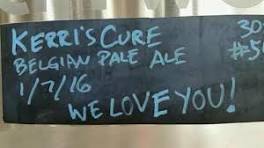 KERRI'S CURE 30
BELGIAN PALE ALE #50
1/7/16
WE LOVE YOU!